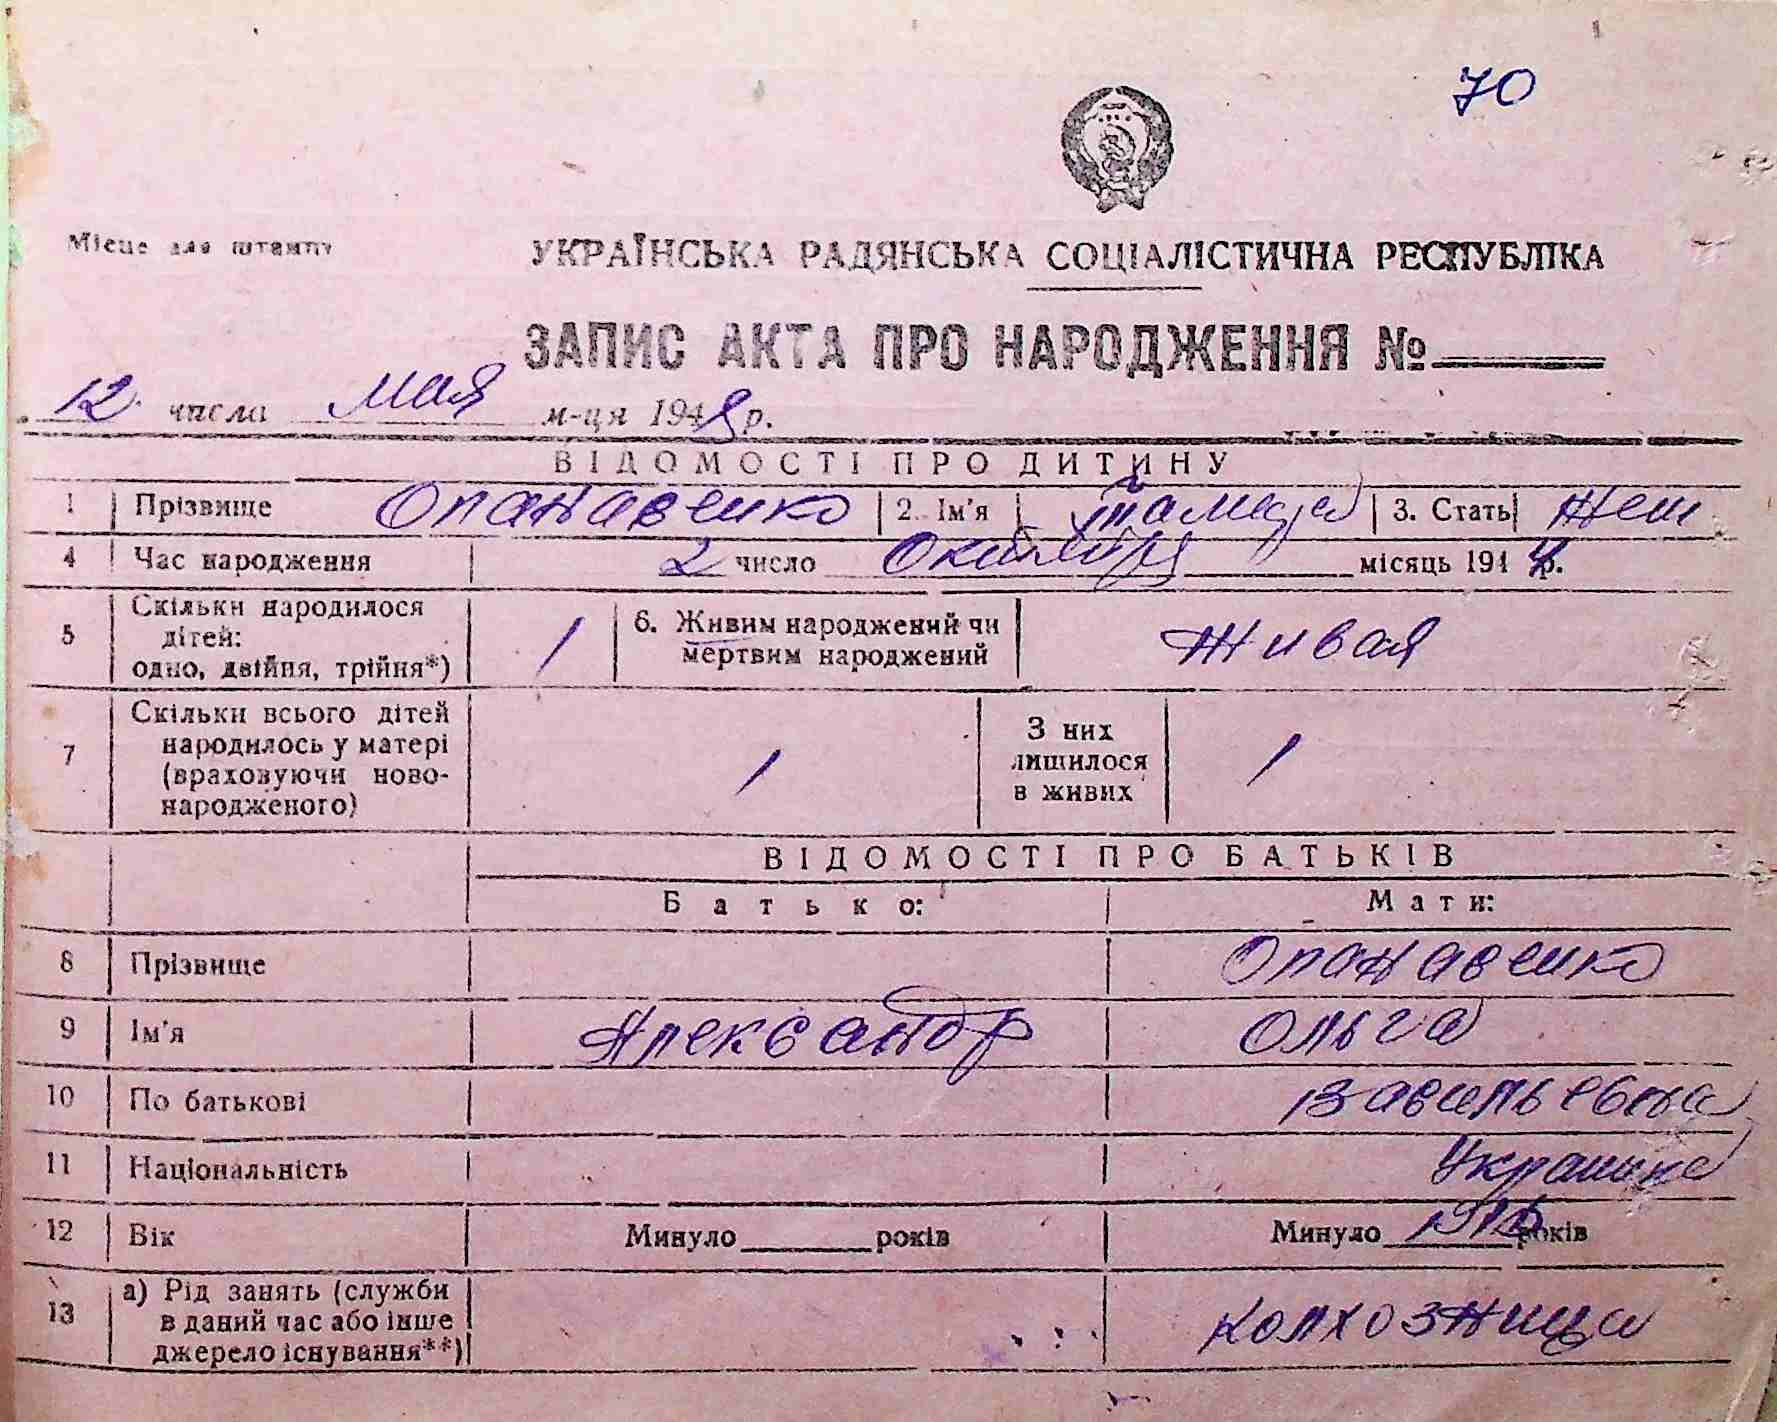 70
Місце для штампу
УКРАЇНСЬКА РАДЯНСЬКА СОЦІАЛІСТИЧНА РЕСПУБЛІКА
ЗАПИС АКТА ПРО НАРОДЖЕННЯ №
12 числа мая м-ця 1948 р.
ВІДОМОСТІ ПРО ДИТИНУ
1 Прізвище Опанавенко 2. Ім'я 3. Стать Жен
4 Час народження 2 число Октября місяць 194 р.
5 Скільки народилося дітей: одно, двійня, трійня*) 1 6. Живим народжений чи мертвим народжений Живая
7 Скільки всього дітей народилось у матері (враховуючи новонародженого) 1 З них лишилося в живих 1
ВІДОМОСТІ ПРО БАТЬКІВ
Батько: Мати:
8 Прізвище Опанавенко
9 Ім'я Александр Ольга
10 По батькові Васильевна
11 Національність Украинка
12 Вік Минуло років Минуло років
13 а) Рід занять (служби в даний час або інше джерело існування**) колхозница